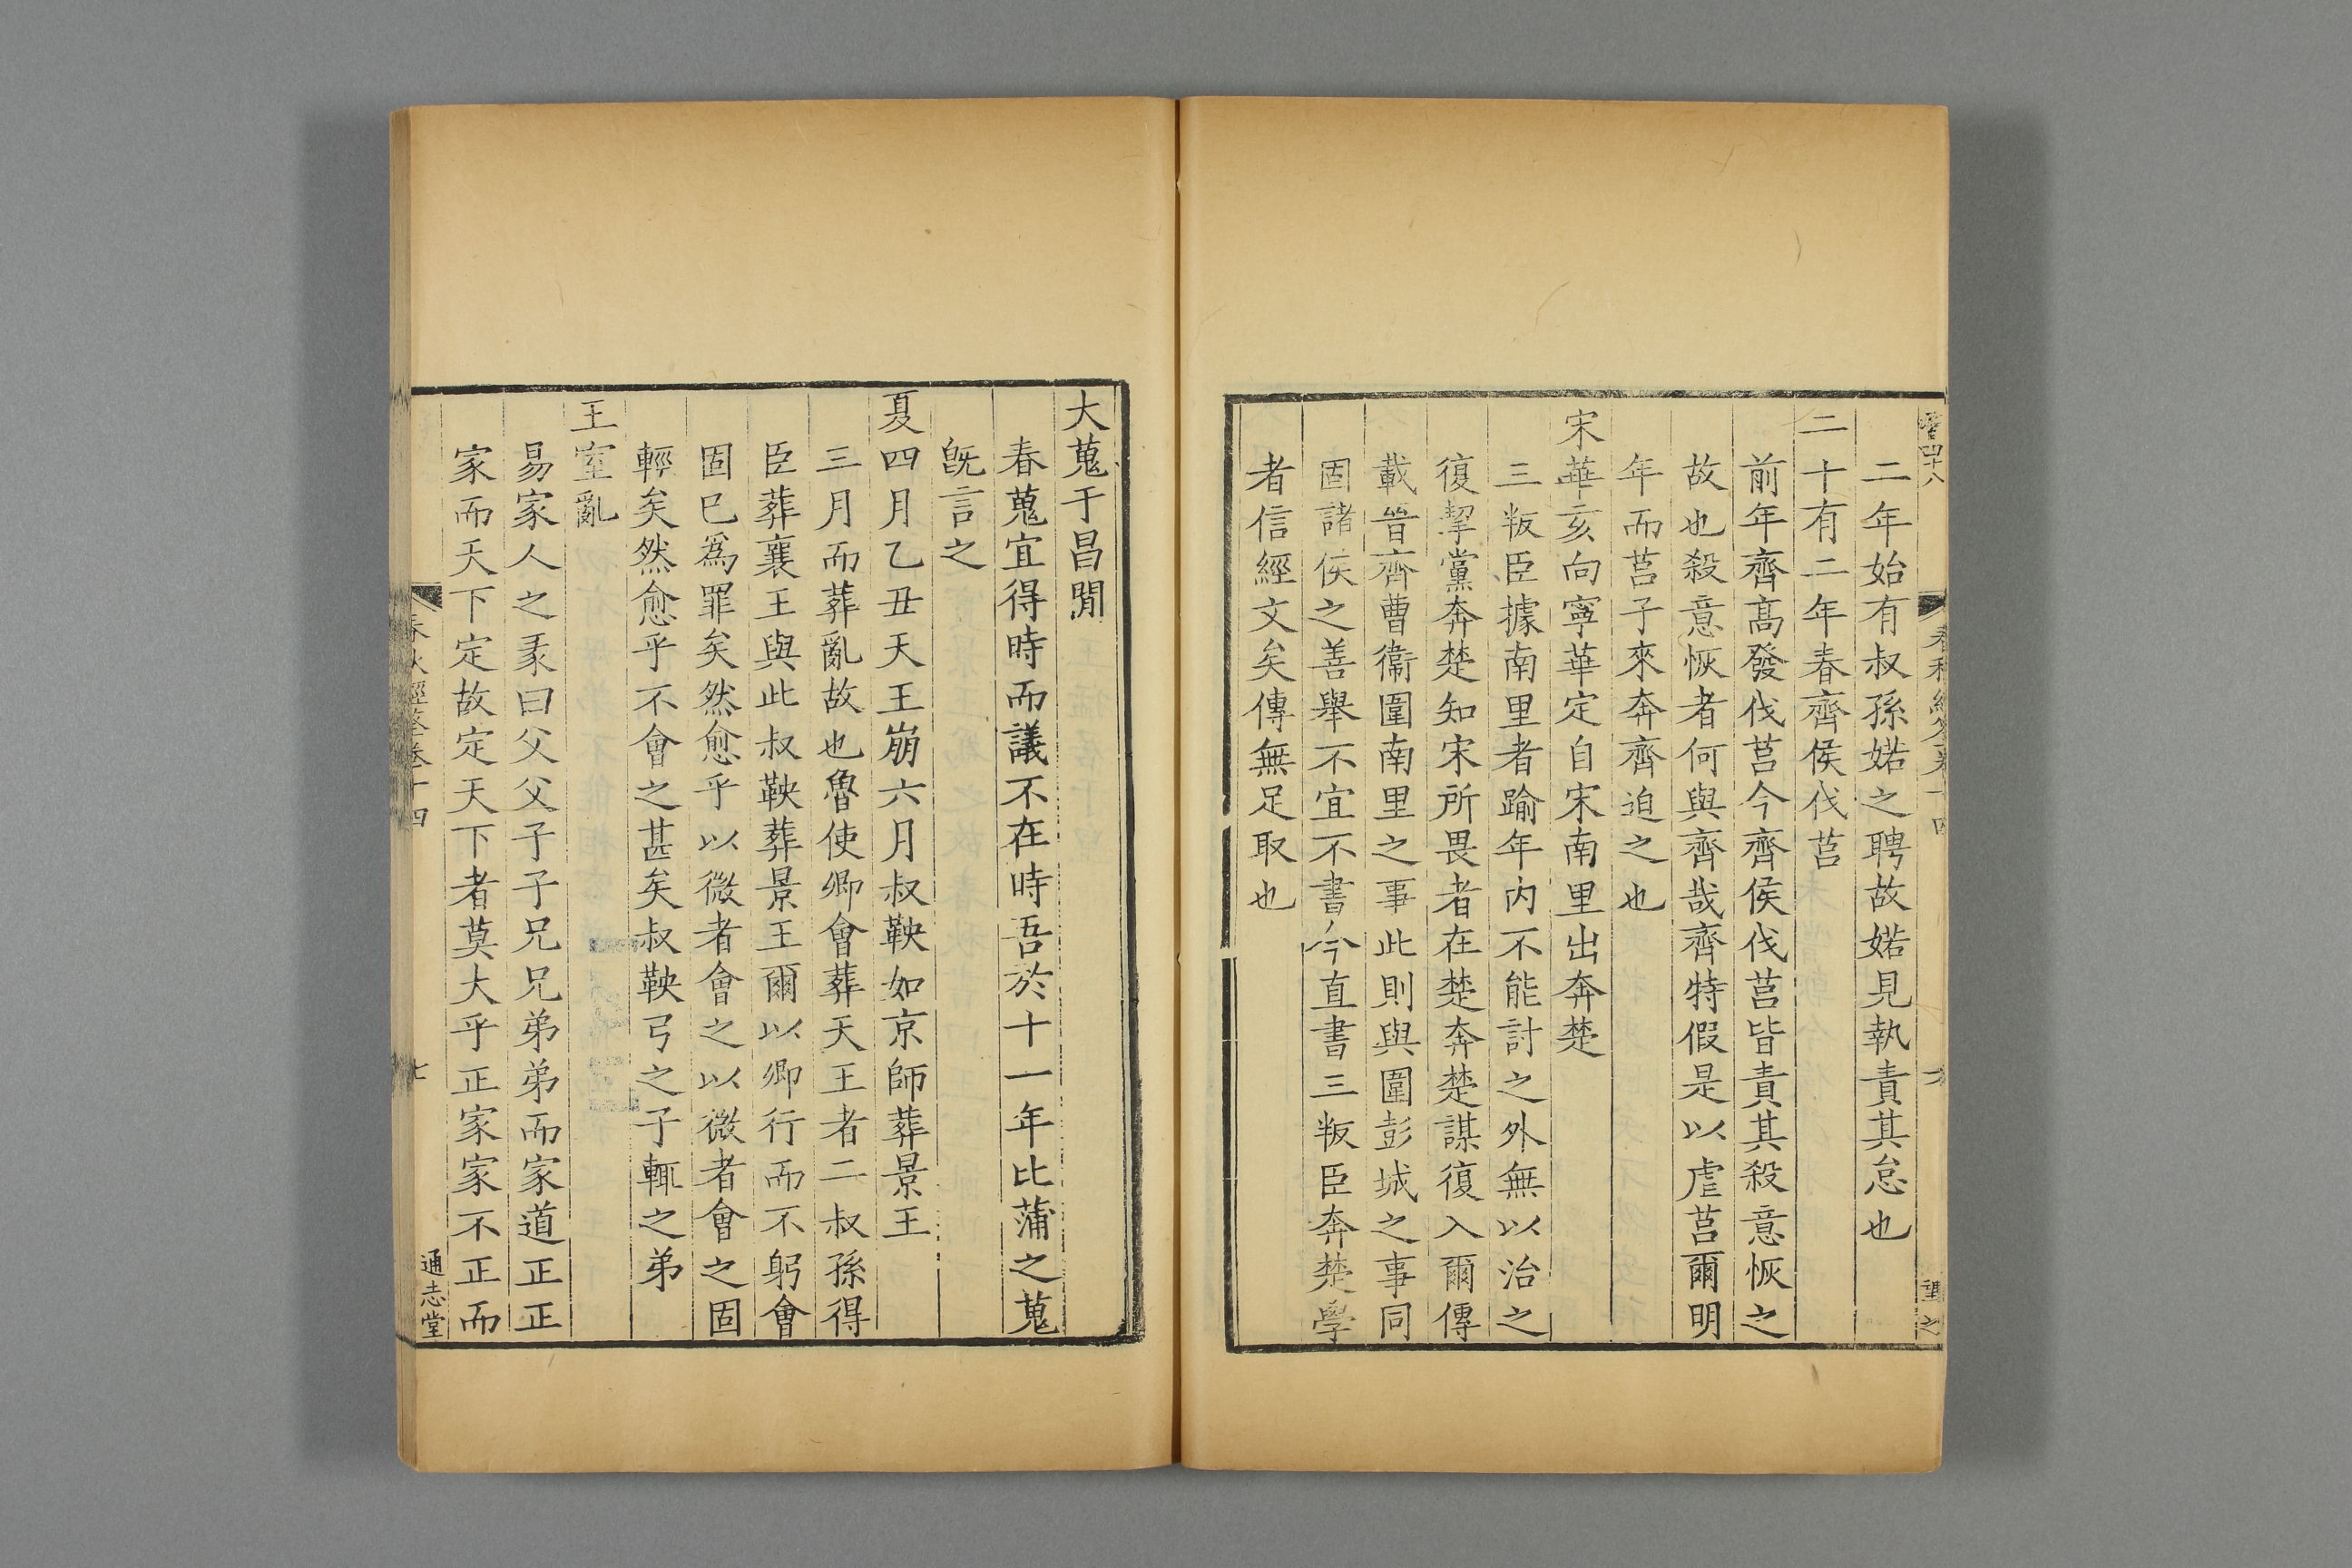 二年始有叔孫婼之聘故婼見執責其怠也
二十有二年春齊侯伐莒
前年齊髙發伐莒今齊侯伐莒皆責其殺意恢之
故也殺意恢者何與齊哉齊特假是以虐莒爾明
年而莒子來奔齊迫之也
宋華亥向寧華定自宋南里出奔楚
三叛臣據南里者踰年内不能討之外無以治之
復挈黨奔楚知宋所畏者在楚奔楚謀復入爾傳
載晉齊曹衞圍南里之事此則與圍彭城之事同
固諸侯之善舉不宜不書今直書三叛臣奔楚學
者信經文矣傳無足取也
大蒐于昌閒
春蒐宜得時而議不在時吾於十一年比蒲之蒐
旣言之
夏四月乙丑天王崩六月叔鞅如京師葬景王
三月而葬亂故也魯使卿會葬天王者二叔孫得
臣葬襄王與此叔鞅葬景王爾以卿行而不躬會
固已爲罪矣然愈乎以微者會之以微者會之固
輕矣然愈乎不會之甚矣叔鞅弓之子輒之弟
王室亂
易家人之彖曰父父子子兄兄弟弟而家道正正
家而天下定故定天下者莫大乎正家家不正而
春秋經筌卷十四
七
通志堂